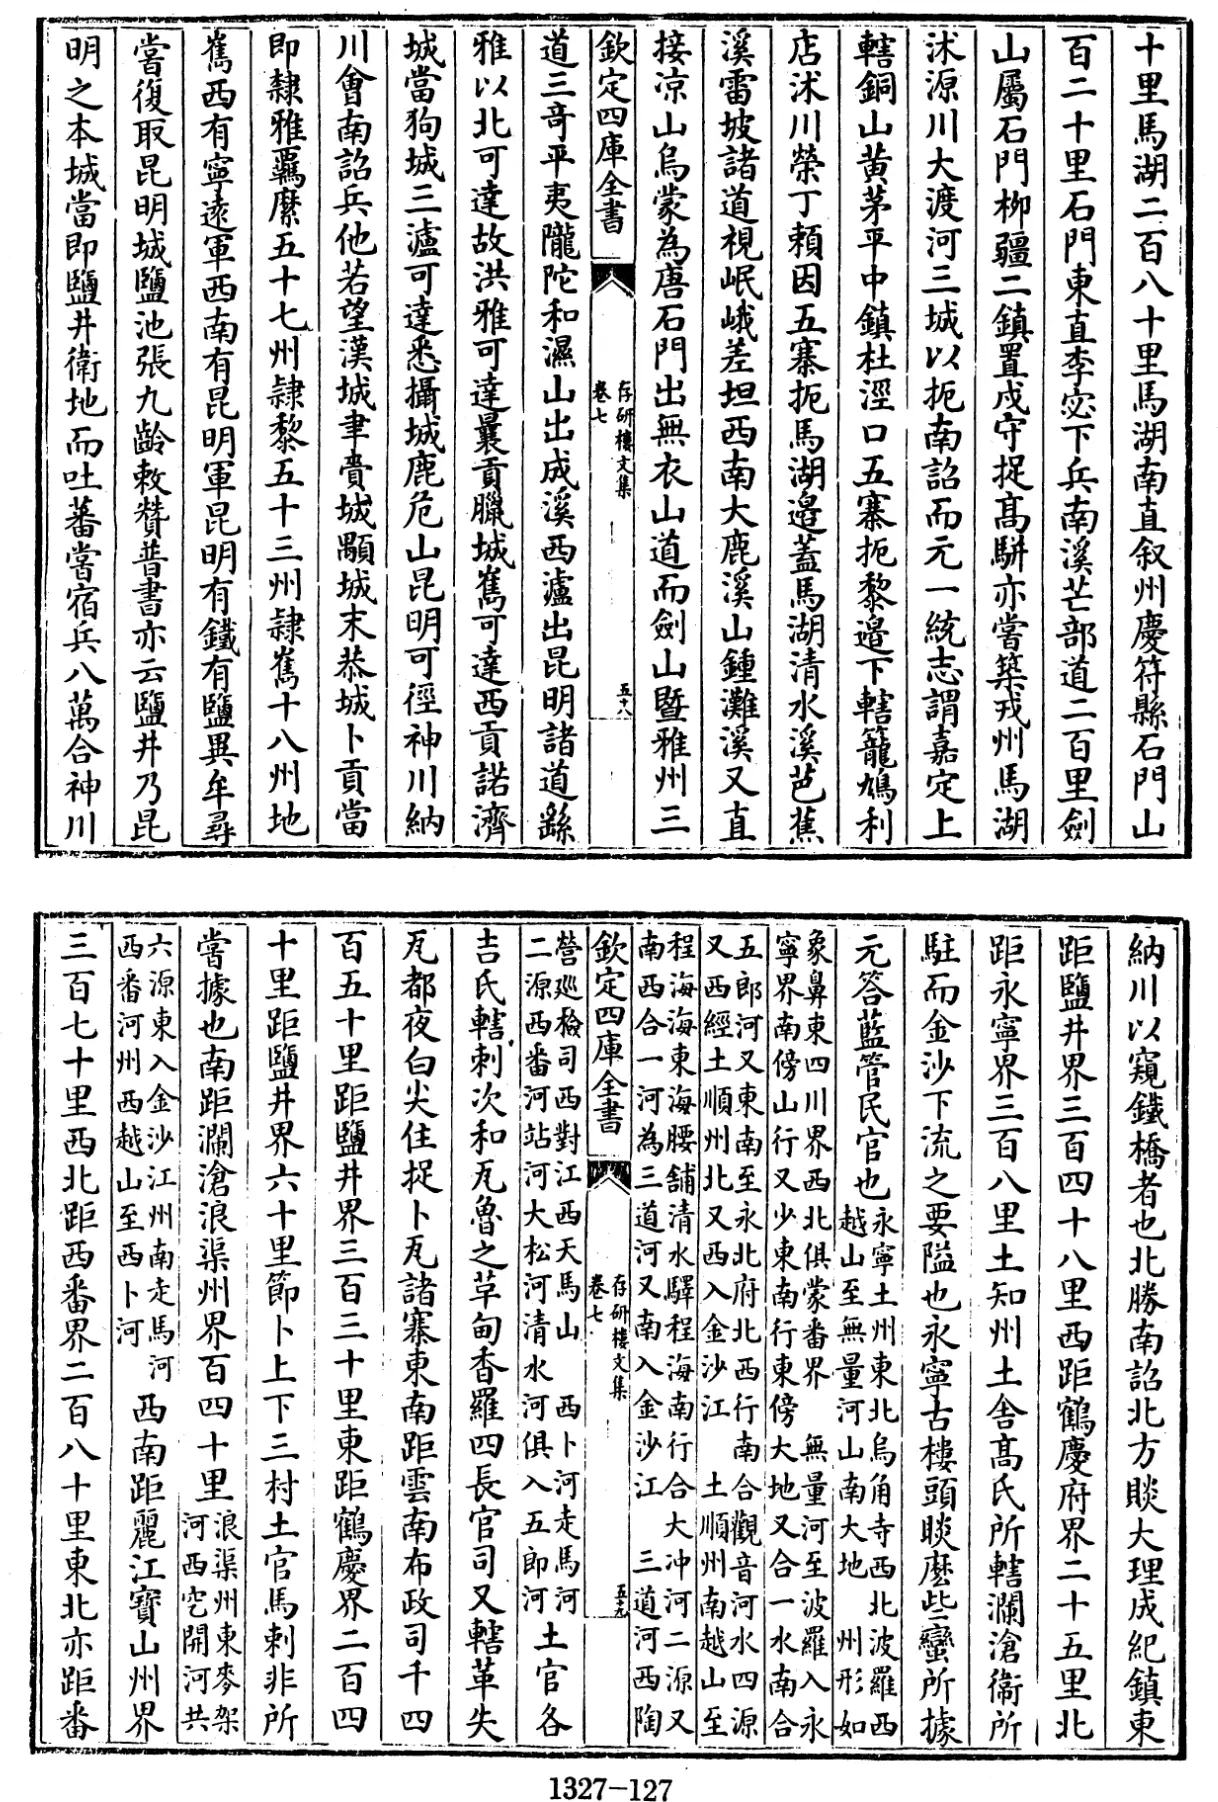 十里馬湖二百八十里馬湖南直叙州慶符縣石門山
百二十里石門東直李宓下兵南溪芒部道二百里劍
山屬石門栁疆二鎮置戍守捉髙駢亦嘗築戎州馬湖
沭源川大渡河三城以扼南詔而元一統志謂嘉定上
轄銅山黄茅平中鎮杜涇口五寨扼黎邉下轄籠鳩利
店沭川榮丁賴因五寨扼馬湖邉葢馬湖清水溪芭蕉
溪雷坡諸道視岷峨差坦西南大鹿溪山鍾灘溪又直
接凉山烏蒙為唐石門出無衣山道而劍山暨雅州三
欽定四庫全書
存研樓文集
卷七
五十八
道三奇平夷隴陀和濕山出成溪西瀘出昆明諸道繇
雅以北可達故洪雅可達曩貢臘城嶲可達西貢諾濟
城當狗城三瀘可達悉攝城鹿危山昆明可徑神川納
川會南詔兵他若望漢城聿賫城顒城末恭城卜貢當
即隸雅覊縻五十七州隸黎五十三州隸嶲十八州地
嶲西有寧逺軍西南有昆明軍昆明有鐵有鹽異牟尋
嘗復取昆明城鹽池張九齡敕贊普書亦云鹽井乃昆
明之本城當即鹽井衛地而吐蕃嘗宿兵八萬合神川
納川以窺鐵橋者也北勝南詔北方賧大理成紀鎮東
距鹽井界三百四十八里西距鶴慶府界二十五里北
距永寧界三百八里土知州土舍髙氏所轄瀾滄衛所
駐而金沙下流之要隘也永寧古樓頭賧麽些蠻所據
元答藍管民官也永寧土州東北烏角寺西北波羅西
越山至無量河山南大地 州形如
象鼻東四川界西北俱蒙番界 無量河至波羅入永
寧界南傍山行又少東南行東傍大地又合一水南合
五郎河又東南至永北府北西行南合觀音河水四源
又西經土順州北又西入金沙江 土順州南越山至
程海海東海腰舖清水驛程海南行合大冲河二源又
南西合一河為三道河又南入金沙江 三道河西陶
欽定四庫全書
存研樓文集
卷七
五十九
營廵檢司西對江西天馬山 西卜河走馬河
二源西番河站河大松河清水河俱入五郎河土官各
吉氏轄剌次和瓦魯之草甸香羅四長官司又轄革失
瓦都夜白尖住捉卜瓦諸寨東南距雲南布政司千四
百五十里距鹽井界三百三十里東距鶴慶界二百四
十里距鹽井界六十里節卜上下三村土官馬剌非所
嘗據也南距瀾滄浪渠州界百四十里浪渠州東麥架
河西空開河共
六源東入金沙江州南走馬河
西番河州西越山至西卜河西南距麗江寳山州界
三百七十里西北距西番界二百八十里東北亦距番
1327-127